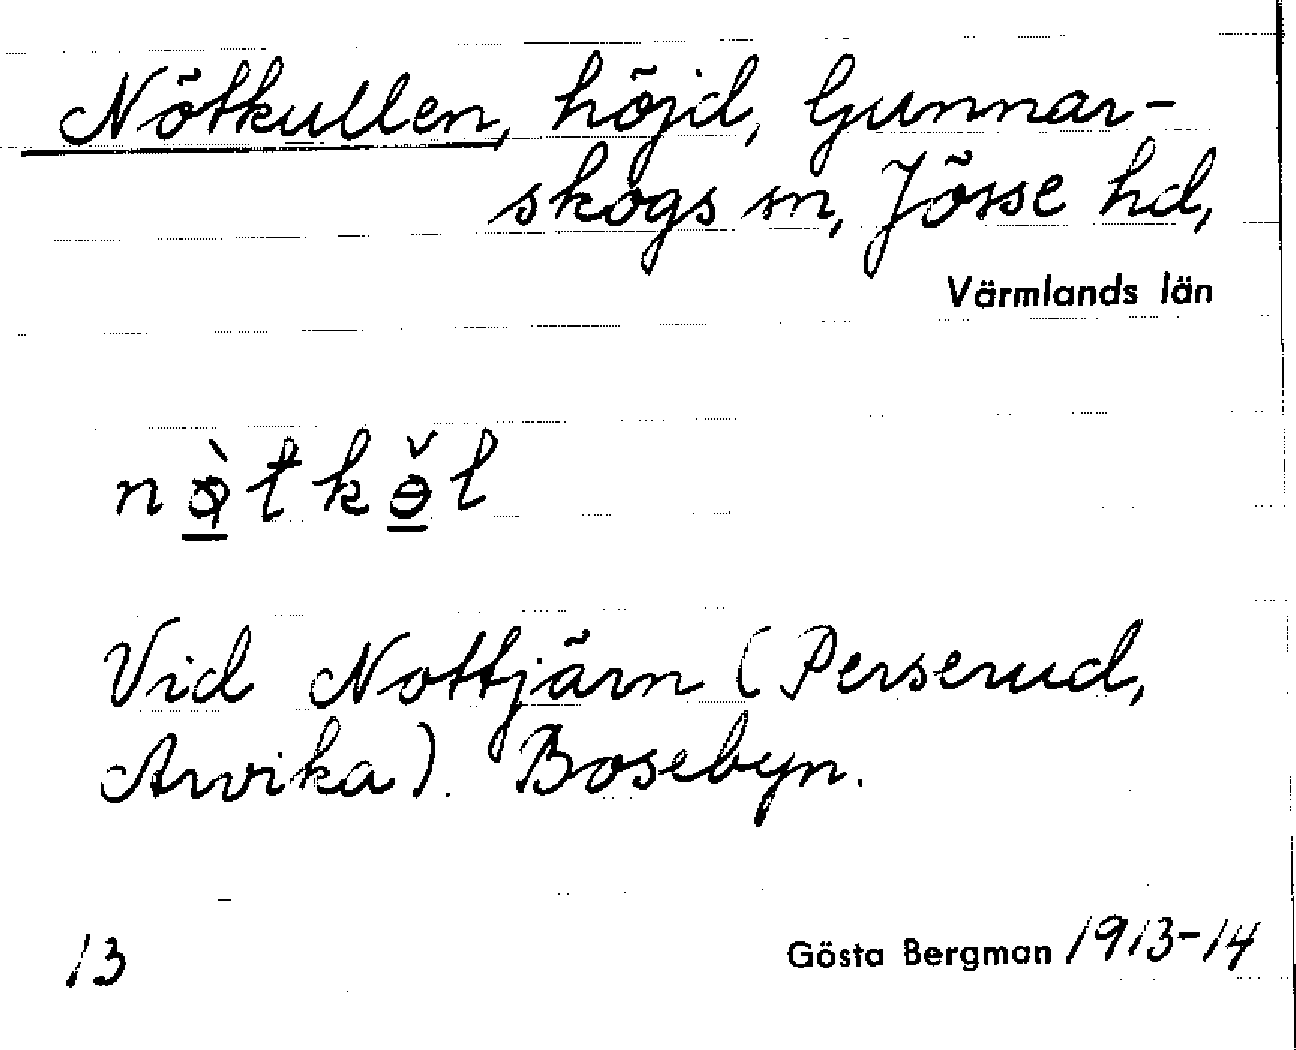 Nötkullen, höjd, Gunnar-
skogs sn, Jösse hd,
Värmlands län
Vid Nottjärn (Perserud,
Arvika). Bosebyn.
13
Gösta Bergman 1913-14